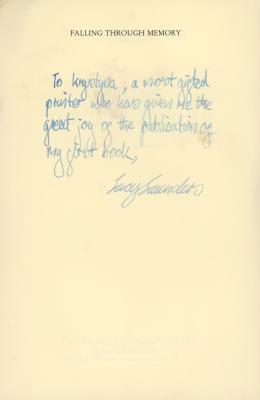 FALLING THROUGH MEMORY
To Krystyna, a most gifted
printer who has given me the
great joy of the publication of
my first book,
Lucy Saunders